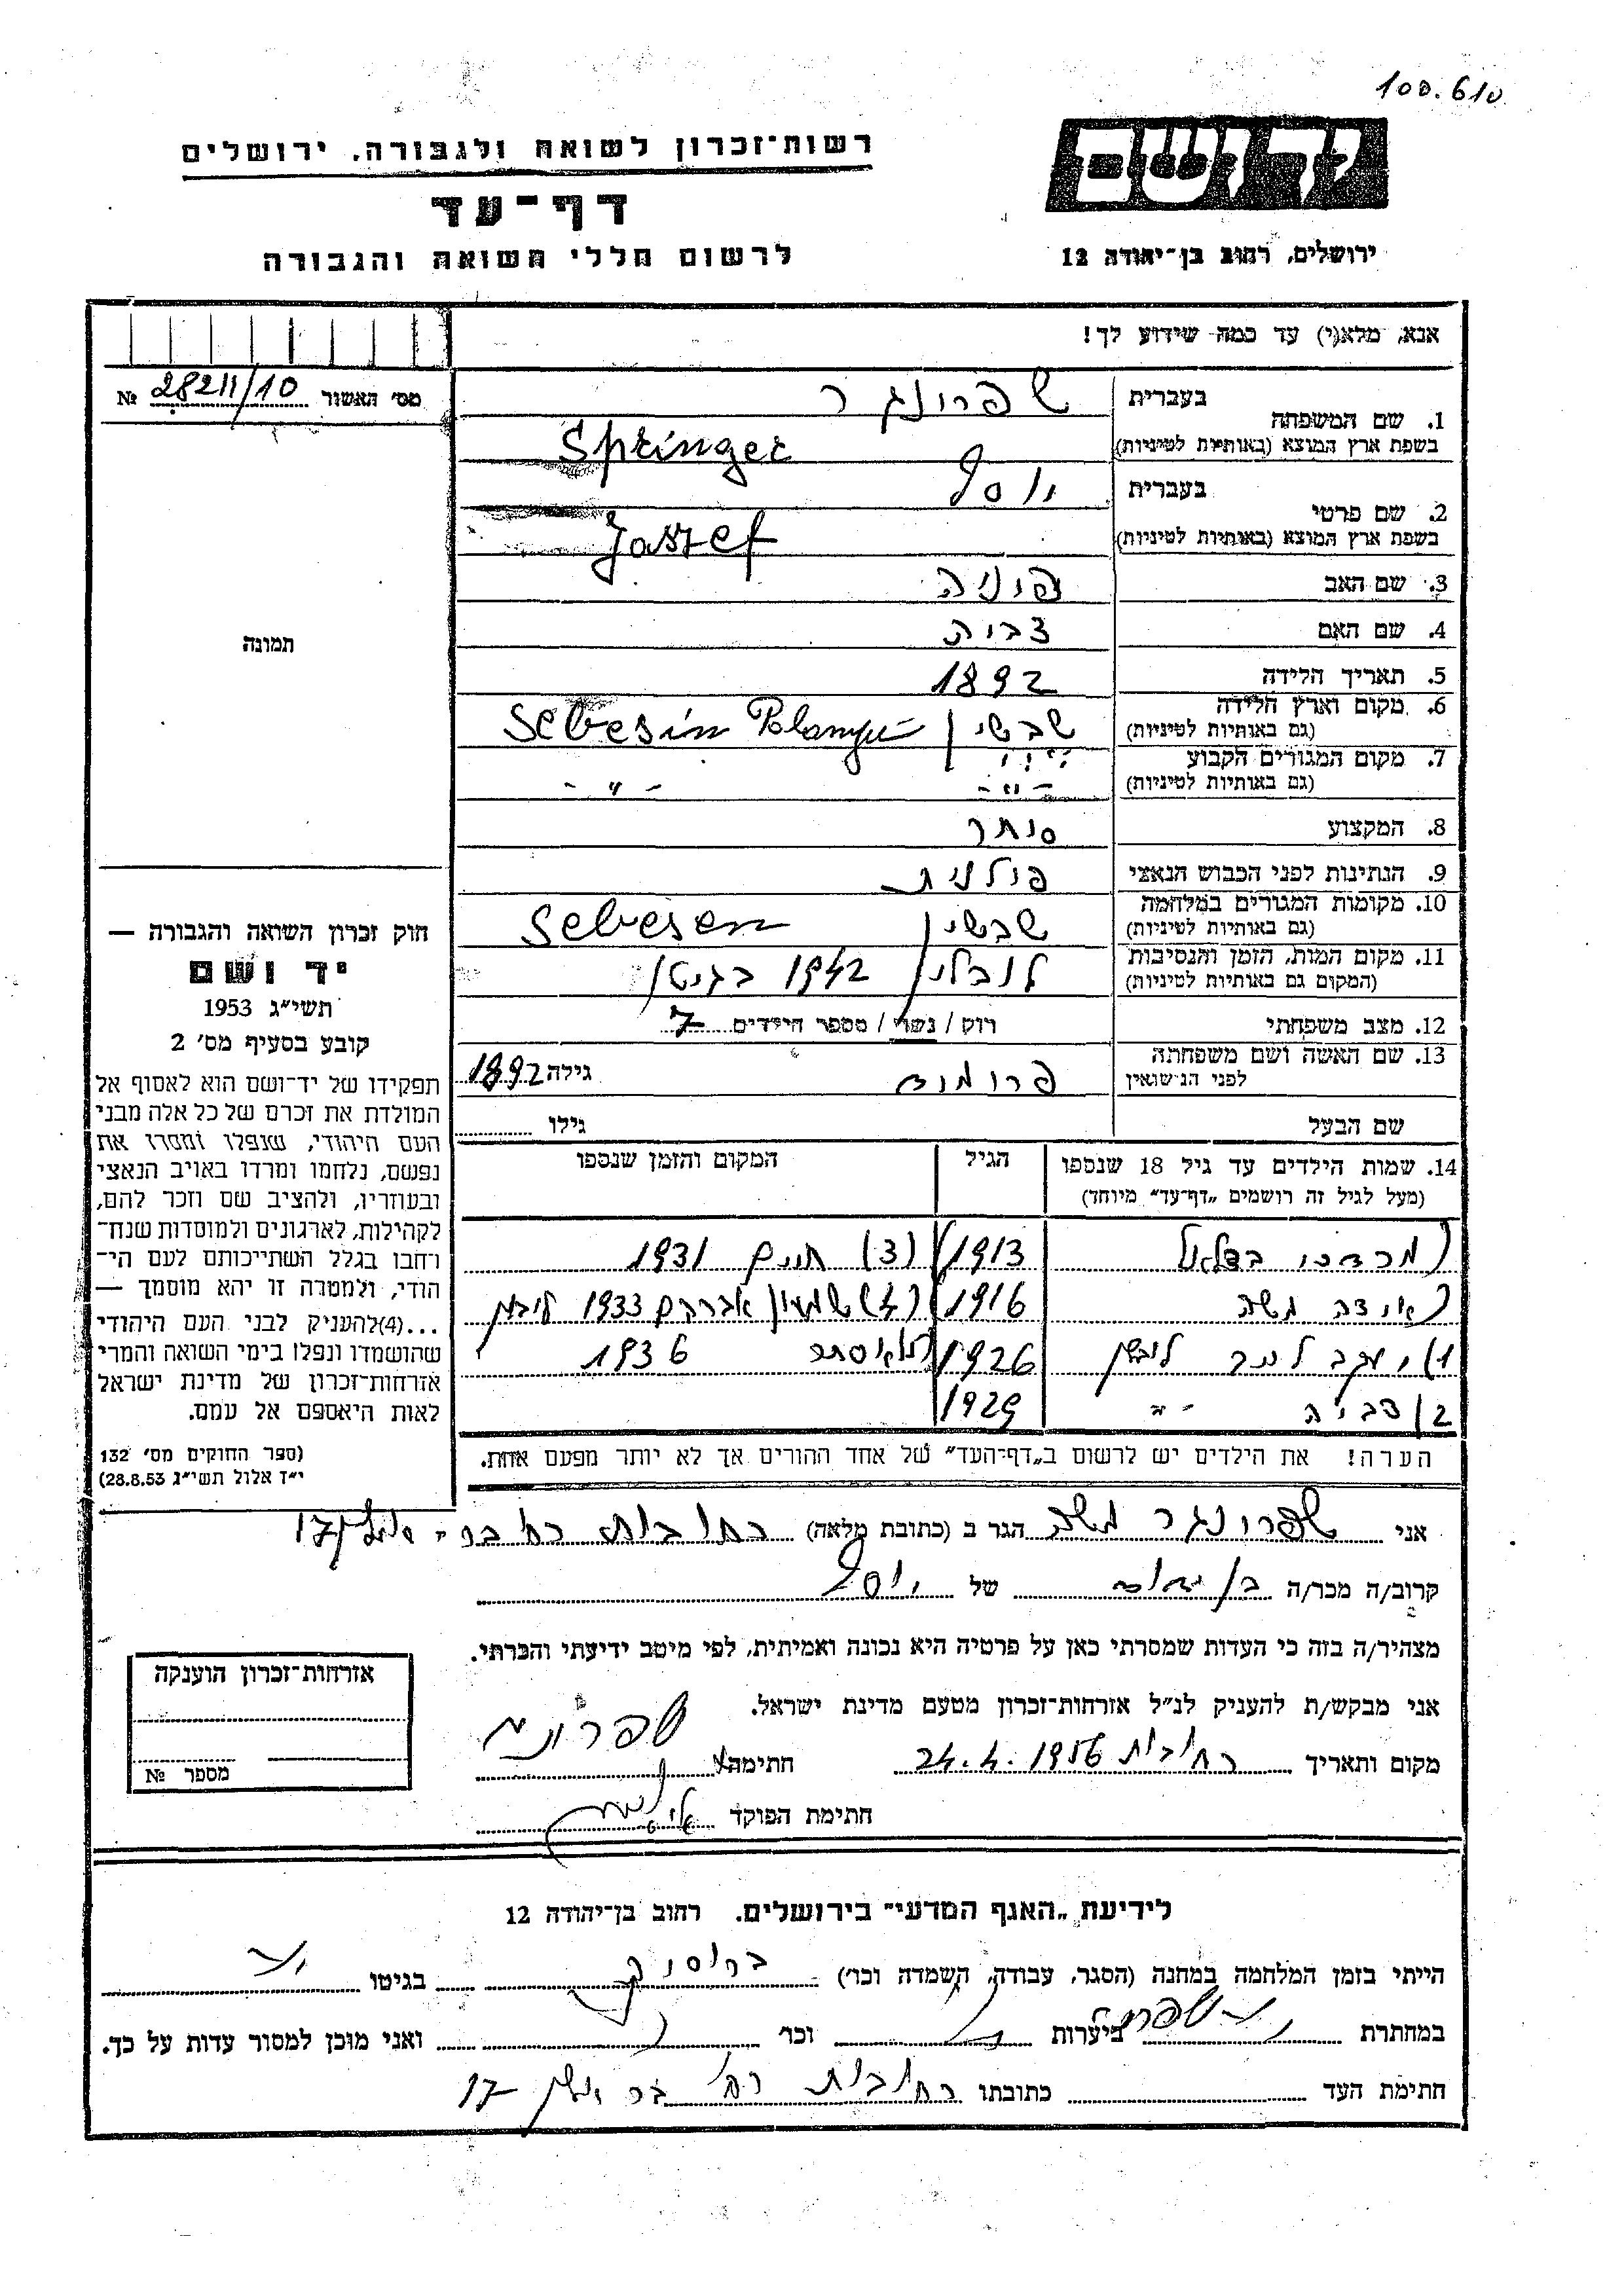 100.610
יד ושם
רשות־זכרון לשואה ולגבורה, ירושלים
דף־עד
לרשום חללי השואה והגבורה
ירושלים, רחוב בן־יהודה 12
אנא, מלא(י) עד כמה שידוע לך!
מס' האשור 28211/10 №
1. שם המשפחה
בעברית שפרונגר
בשפת ארץ המוצא (באותיות לטיניות) Springer
2. שם פרטי
בעברית יוסף
בשפת ארץ המוצא (באותיות לטיניות) Joszef
3. שם האב
4. שם האם
5. תאריך הלידה 1892
6. מקום וארץ הלידה
(גם באותיות לטיניות) שבשין Sebesin
7. מקום המגורים הקבוע
(גם באותיות לטיניות) -"- -"-
8. המקצוע סוחר
9. הנתינות לפני הכבוש הנאצי פולנית
10. מקומות המגורים במלחמה
(גם באותיות לטיניות) שבשין Sebesen
11. מקום המות, הזמן והנסיבות
(המקום גם באותיות לטיניות) לובלין 1942 בגיטו
12. מצב משפחתי רוק / נשוי / מספר הילדים 7
13. שם האשה ושם משפחתה
לפני הנישואין גילה 1892
שם הבעל גילו
תמונה
חוק זכרון השואה והגבורה —
יד ושם
תשי"ג 1953
קובע בסעיף מס' 2
תפקידו של יד־ושם הוא לאסוף אל
המולדת את זכרם של כל אלה מבני
העם היהודי, שנפלו ומסרו את
נפשם, נלחמו ומרדו באויב הנאצי
ובעוזריו, ולהציב שם וזכר להם,
לקהילות, לארגונים ולמוסדות שנח־
רחבו בגלל השתייכותם לעם הי־
הודי, ולמטרה זו יהא מוסמך —
...(4)להעניק לבני העם היהודי
שהושמדו ונפלו בימי השואה והמרי
אזרחות־זכרון של מדינת ישראל
לאות היאספם אל עמם.
(ספר החוקים מס' 132
י"ז אלול תשי"ג 28.8.53)
14. שמות הילדים עד גיל 18 שנספו
(מעל לגיל זה רושמים „דף־עד" מיוחד)
הגיל
המקום והזמן שנספו
מרדכי בצלאל 1913 (3) חיים 1931
משה 1916 (4) שמעון אברהם 1933
1) יעקב 1926 1936
2) צביה -"- 1929
הערה! את הילדים יש לרשום ב„דף־העד" של אחד ההורים אך לא יותר מפעם אחת.
אני שפרונגר משה הגר ב (כתובת מלאה) רחובות רח' 17
קרוב/ה מכר/ה בן של יוסף
מצהיר/ה בזה כי העדות שמסרתי כאן על פרטיה היא נכונה ואמיתית, לפי מיטב ידיעתי והכרתי.
אני מבקש/ת להעניק לנ"ל אזרחות־זכרון מטעם מדינת ישראל.
מקום ותאריך רחובות 24.4.1956 חתימה
חתימת הפוקד
אזרחות־זכרון הוענקה
מספר №
לידיעת „האגף המדעי" בירושלים. רחוב בן־יהודה 12
הייתי בזמן המלחמה במחנה (הסגר, עבודה, השמדה וכו') בגיטו
במחתרת ביערות וכו' ואני מוכן למסור עדות על כך.
חתימת העד כתובתו רחובות רח' 17